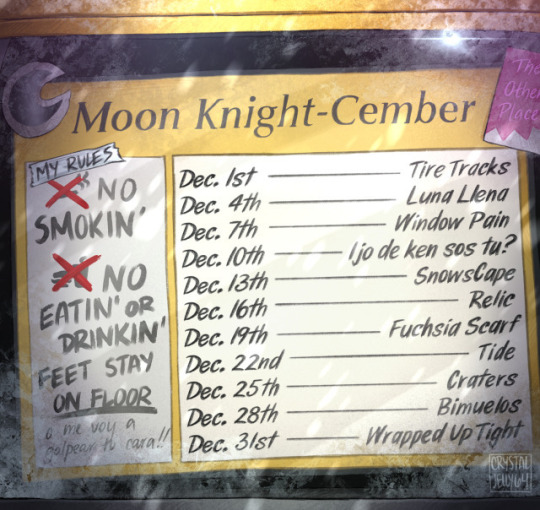 Moon Knight-Cember
The
Other
Place
MY RULES
NO
SMOKIN'
NO
EATIN' OR
DRINKIN'
FEET STAY
ON FLOOR
o me voy a
golpear tu cara!!
Dec. 1st Tire Tracks
Dec. 4th Luna Llena
Dec. 7th Window Pain
Dec. 10th Ijo de ken sos tu?
Dec. 13th SnowsCape
Dec. 16th Relic
Dec. 19th Fuchsia Scarf
Dec. 22nd Tide
Dec. 25th Craters
Dec. 28th Bimuelos
Dec. 31st Wrapped Up Tight
CRYSTAL
JELLY64